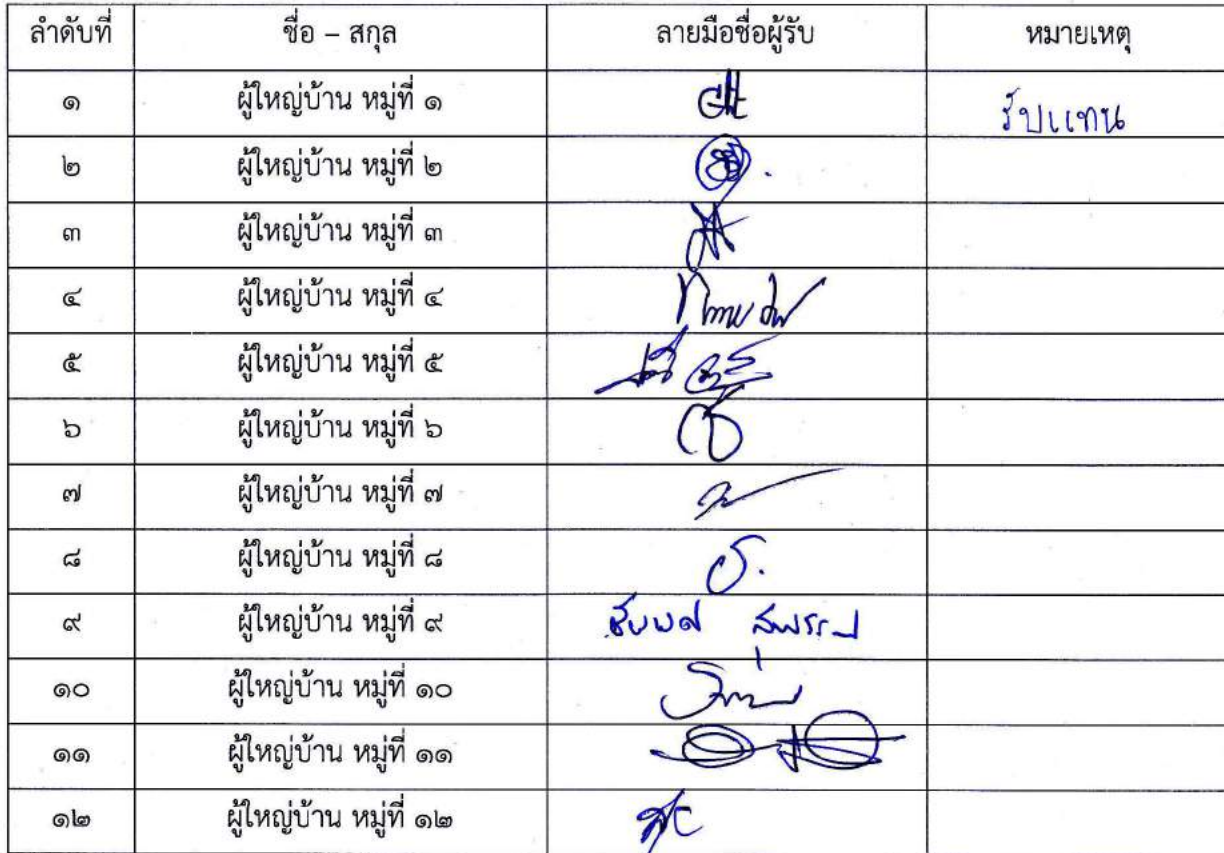 ลำดับที่ ชื่อ – สกุล ลายมือชื่อผู้รับ หมายเหตุ
๑ ผู้ใหญ่บ้าน หมู่ที่ ๑ รับแทน
๒ ผู้ใหญ่บ้าน หมู่ที่ ๒
๓ ผู้ใหญ่บ้าน หมู่ที่ ๓
๔ ผู้ใหญ่บ้าน หมู่ที่ ๔
๕ ผู้ใหญ่บ้าน หมู่ที่ ๕
๖ ผู้ใหญ่บ้าน หมู่ที่ ๖
๗ ผู้ใหญ่บ้าน หมู่ที่ ๗
๘ ผู้ใหญ่บ้าน หมู่ที่ ๘
๙ ผู้ใหญ่บ้าน หมู่ที่ ๙
๑๐ ผู้ใหญ่บ้าน หมู่ที่ ๑๐
๑๑ ผู้ใหญ่บ้าน หมู่ที่ ๑๑
๑๒ ผู้ใหญ่บ้าน หมู่ที่ ๑๒